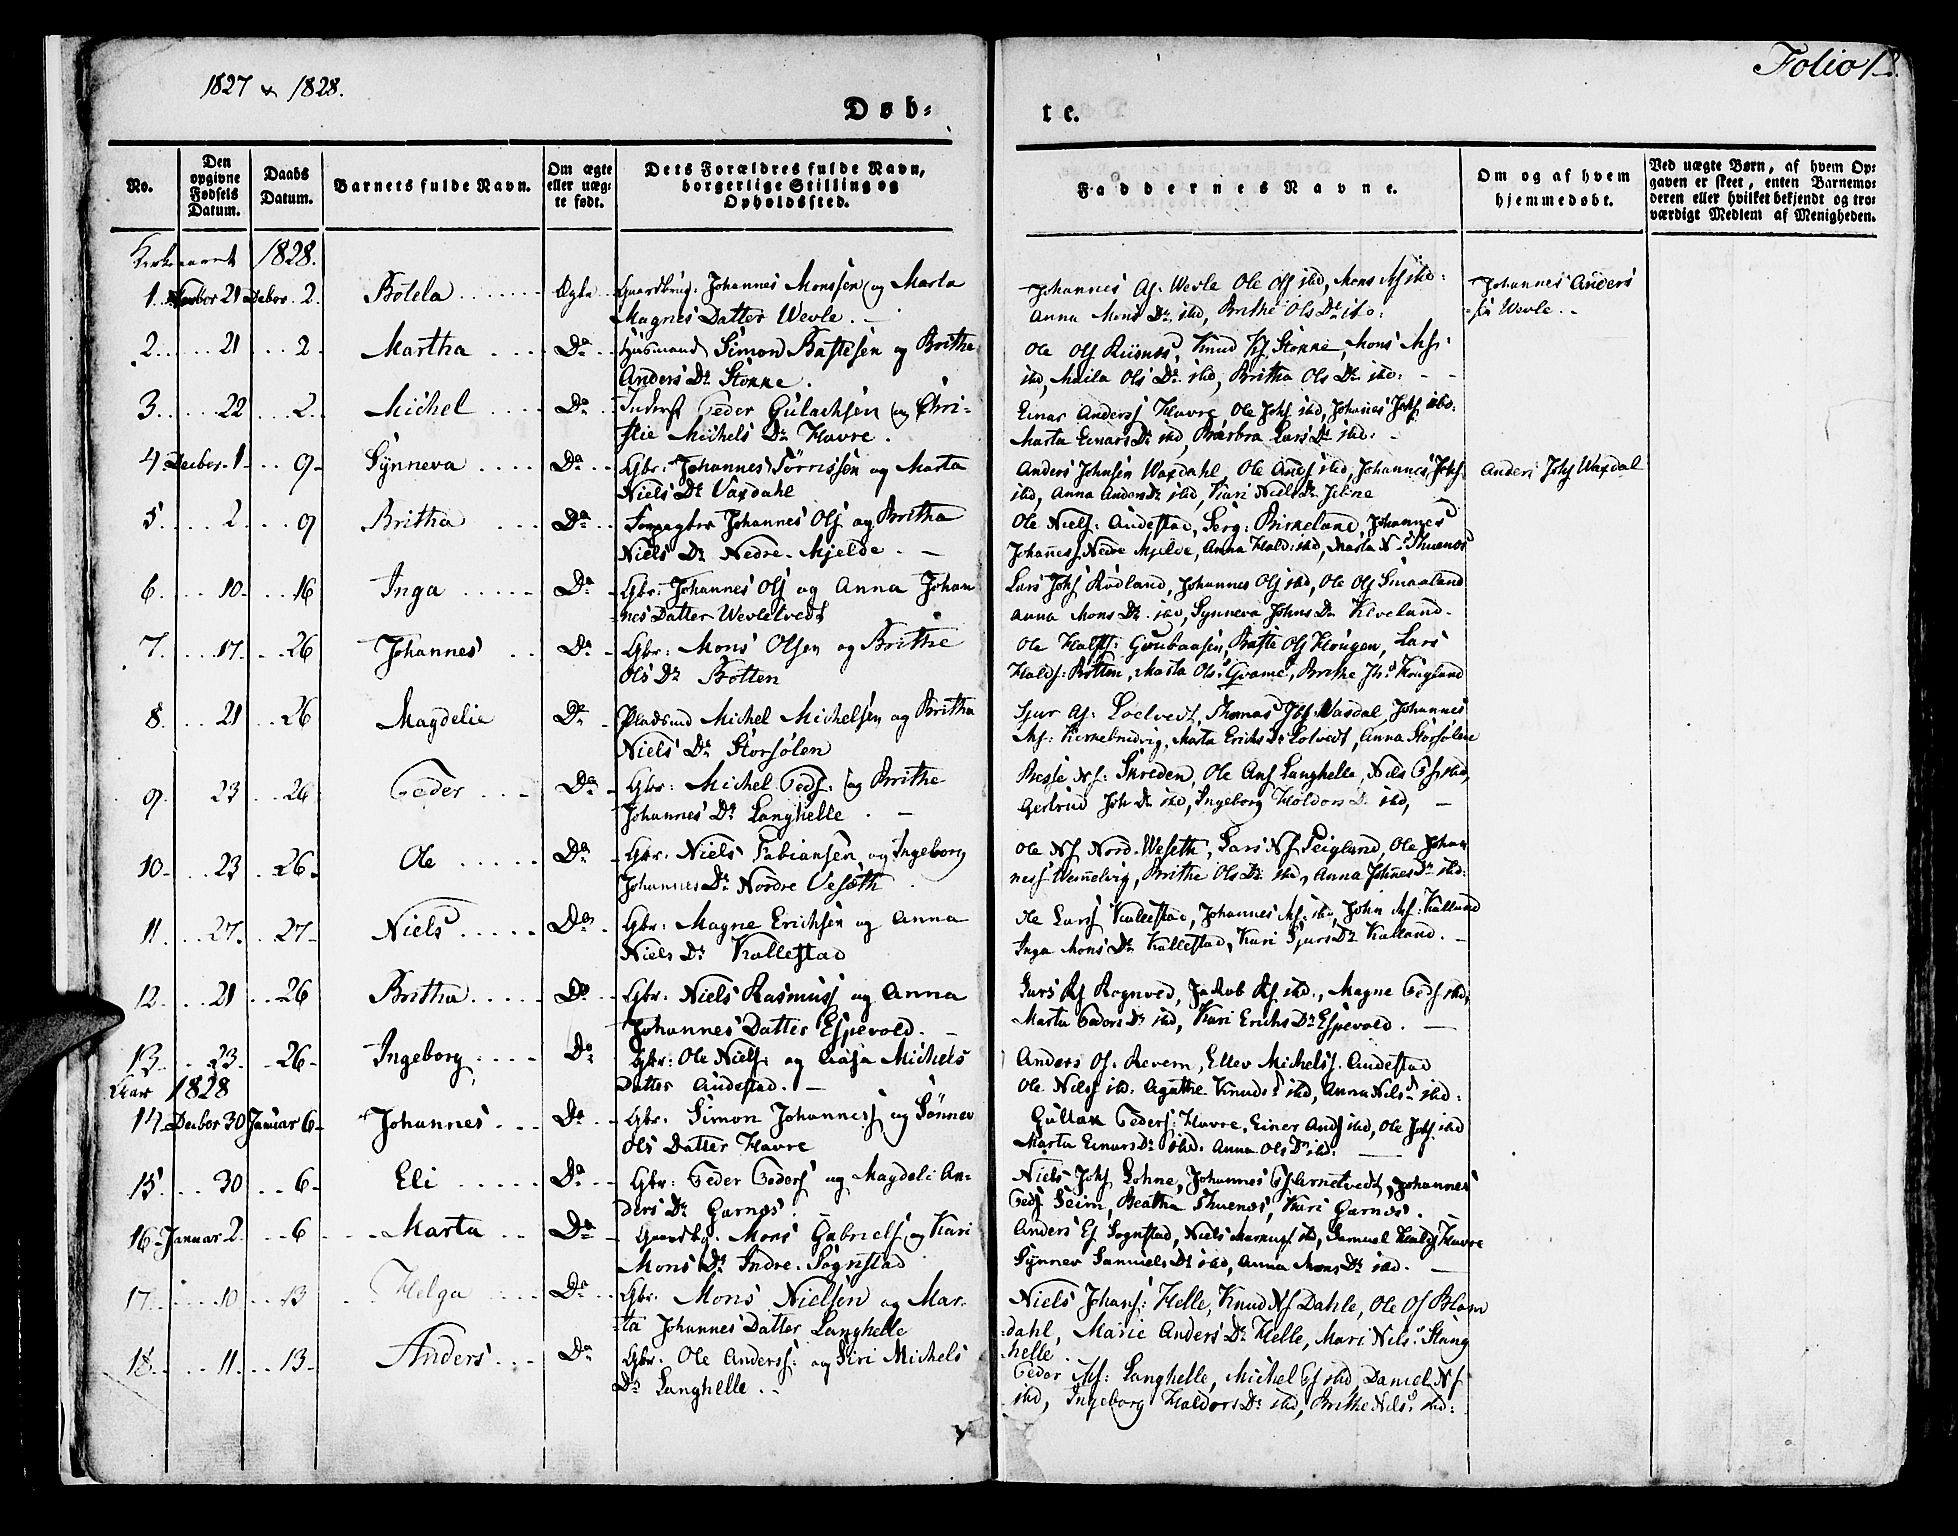 1827 & 1828.
Folio 13.
Døb-
te.
No.
Den opgivne Fødsels Datum.
Daabs Datum.
Barnets fulde Navn.
Om ægte eller uæg-te født.
Dets Forældres fulde Navn, borgerlige Stilling og Opholdssted.
Faddernes Navne.
Om og af hvem hjemmedøbt.
Ved uægte Børn, af hvem Op-gaven er skeet, enten Barnemo-deren eller hvilket bekjendt og tro-værdigt Medlem af Menigheden.
Kirkeaaret 1828.
1. Novbor 21 Decbor 2. Bøtela Ægte Gaardbrug: Johannes Monssen og Marta
Magnes Datter Wevle.
Johannes Aſ. Wevle Ole Olſ ibd, Mons Mſ ibd:
Anna Mons Dr ibd, Brithe Ols Dr ibd:
Johannes Anders
Wevle
2. 21 2 Martha Do Huusmand Simon Bastesen og Brithe
Anders Dr Stønne.
Ole Olſ Riisnes, Knud Kſ Stønne, Mons Mſ:
ibd, Ols Dr ibd, Britha Ols Dr ibd:
3. 22 2 Michel Do Inderst Peder Gulachsen og Chri-
stie Michels Dr Havre.
Einar Andersſ Havre Ole Johſ ibd, Johanes Johſ ibd:
Marta Einars Dr ibd, Barbra Lars Dr ibd:
4 Decber 1 9 Synneva Do Gbr: Johannes Tørrissen og Marta
Niels Dr Vaxdahl
Anders Johnsen Waxdahl, Ole Andſ ibd, Johannes Johſ
ibd, Anna Anders Dr ibd, Kari Niels Dr
Anders Johſ Waxdal
5 2 9 Britha Do Forpagter Johannes Olſ og Britha
Niels Dr Nedre Mjelde.
Ole Nielſ: Audestad, Birkeland, Johannes
Johanesſ Nedre Mjelde, Anna Hald: ibd, Marta
6 10 16 Inga Do Gbr: Johannes Olſ og Anna Johan
nes Datter Wevletvedt
Lars Johſ Rødland, Johannes Olſ ibd, Ole Olſ Smaaland
Anna Mons Dr ibd, Synneva Johns Dr Kleveland.
7 17 26 Johannes Do Gbr: Mons Olsen og Brithe
Ols Dr Botten
Ole Halſ: Baste Olſ Hougen, Lars
Haldſ: Botten, Marta Ols Brithe
8 21 26 Magdelie Do Pladsmd Michel Michelsen og Britha
Niels Dr Storsølen
Sjur Aſ: Lotvedt, Thomas Johſ Vasdal, Johannes
Mſ: Marta Erichs Dr Lotvedt, Anna Storsølen
9 23 26 Peder Do Gbr: Michel Pedſ: og Brithe
Johannes Dr Langhelle
Nſ: Skreden, Ole Anſ Langhelle, Nils ibd,
Gertrud Joh Dr ibd, Ingeborg Holdors D. ibd,
10 23 26 Ole Do Gbr: Niels Fabiansen og Ingeborg
Johannes Dr Nordre Veseth
Ole Nſ Nord Weseth, Lars Nſ Seigland, Ole Johan
nesſ Brithe Ols Dr ibd, Anna Johnes Dr ibd:
11 27 27 Niels Do Gbr: Magne Erichsen og Anna
Niels Dr Kallestad
Ole Larsſ Kallestad, Johannes Mſ: ibd, John Mſ: Kalland
Inga Mons Dr Kallestad, Kari Sjurs Dr Kalland.
12 21 26 Britha Do Gbr: Niels Rasmusſ og Anna
Johannes Datter Espevold.
Lars Rſ Rognved, Jakob Rſ ibd., Magne Pedſ ibd,
Marta Peders Dr ibd, Kari Erichs Dr Espevold.
13 23 26 Ingeborg Do Gbr: Ole Nielſ og Michels
Datter Audestad.
Anders Oſ: Revem, Ellev Michelsſ. Audestad
Ole Nilsſ ibd: Agathe Knuds ibd, Anna Nils ibd:
Aar 1828
14 Decbor 30 Januar 6 Johannes Do Gbr. Simon Johannesſ og Sønnev
Ols Datter Havre
Gullak Pedersſ: Havre, Einer Andſ ibd, Ole Johſ ibd
Marta Einars Dr ibd. Anna Ols Dr ibd.
15 30 6 Eli Do Gbr: Peder Pedersſ og Magdeli An-
ders Dr Garnæs.
Niels Johſ Lohne, Johannes Arnetvedt, Johannes
Pedſ Seim, Beatha Thuenæs, Kari Garnæs.
16 Januar 2 6 Marta Do Gaardbg. Mons Gabrielsſ og Kari
Mons Dr Indre Sognstad
Anders Eſ Sognstad, Niels ibd, Samuel Havre
Synnev Samuels Dr ibd, Anna Mons Dr ibd.
17 10 13 Helga Do Gbr. Mons Nielsen og Mar-
ta Johannes Datter Langhelle
Niels Johanſ: Helle, Knud Nſ Dahle, Ole Oſ Blom
dahl, Marie Anders Dr Helle, Mari Nils Stang
helle.
18 11 13 Anders Do Gbr. Ole Andersſ: og Siri Michels
Dr Langhelle.
Peder Mſ: Langhelle, Michel ibd, Daniel Nſ
ibd, Ingeborg Haldors Dr ibd, Brithe Nils ibd: